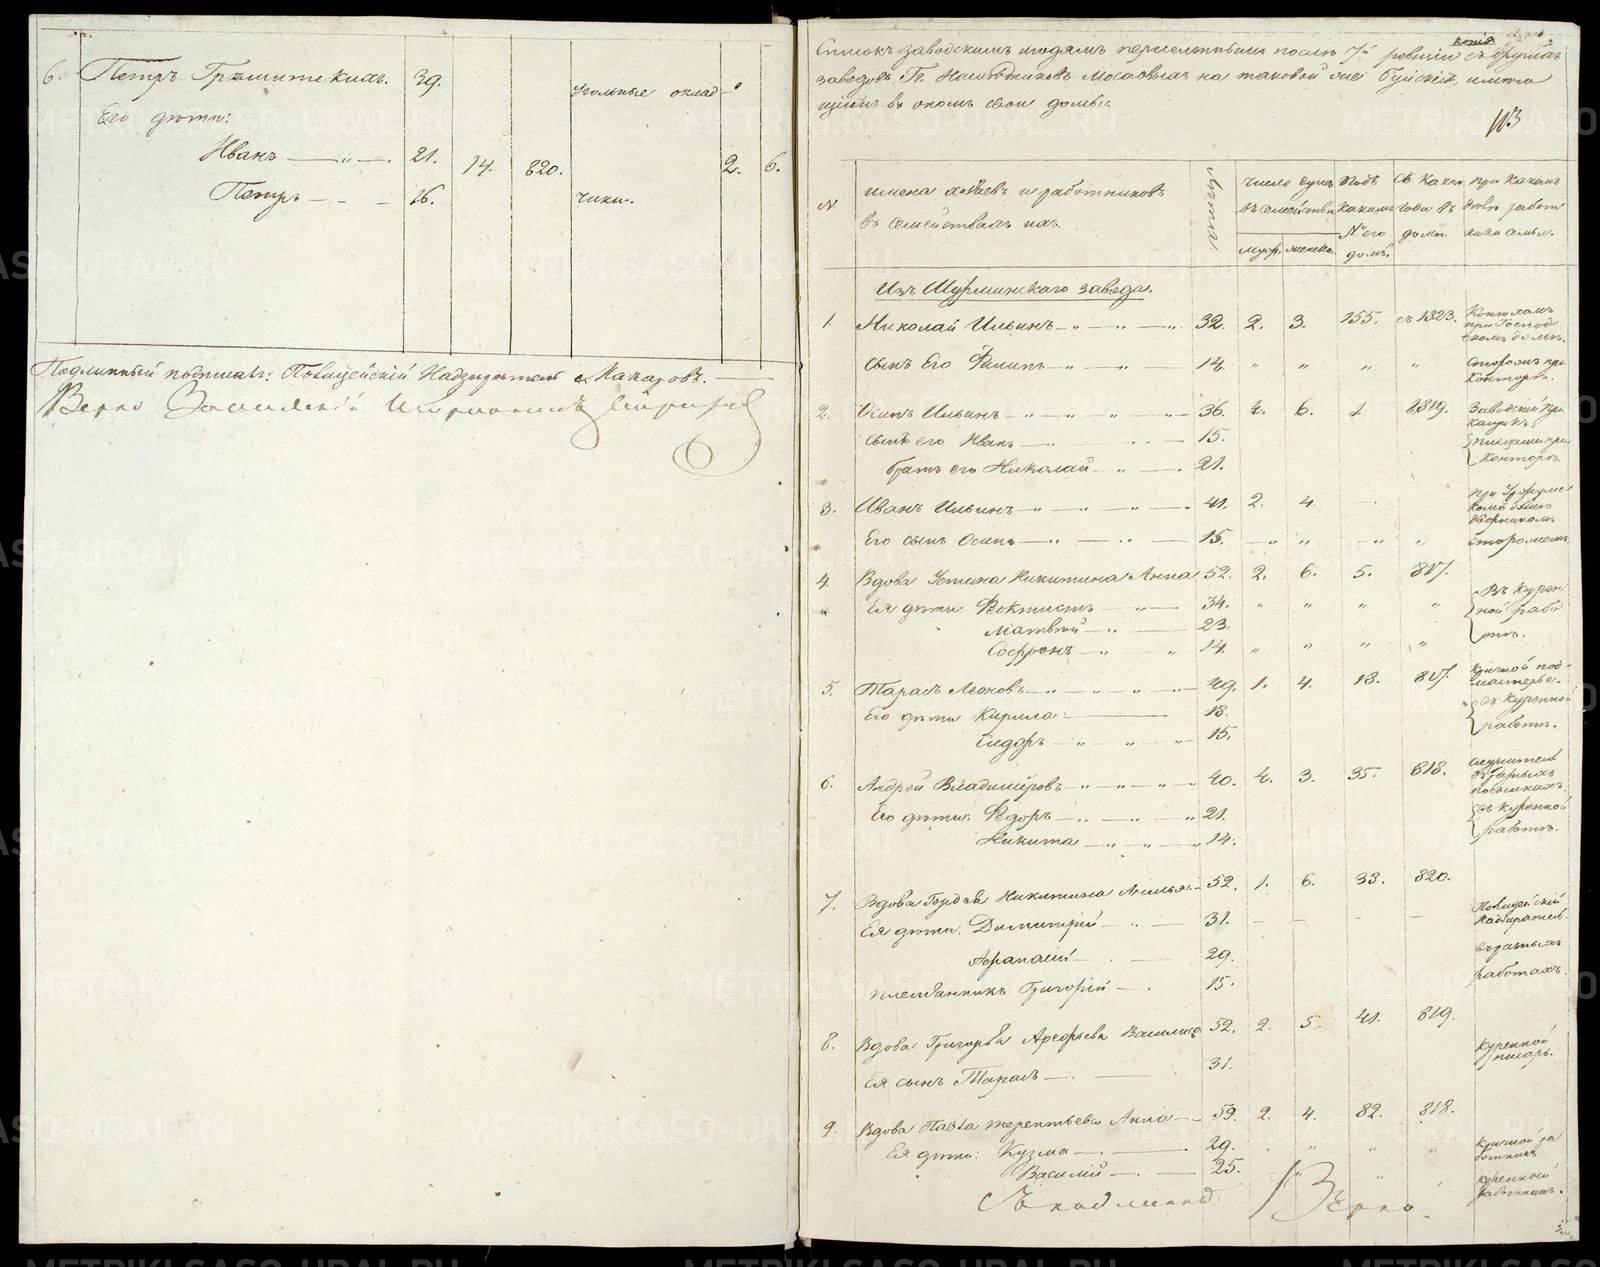 6. Петръ 39.
Угольные оклад
Его дѣти:
Иванъ — " — 21. 14. 820. 2. 6.
Петръ — - - 16. чики.
Подлинный подписалъ: Полицейскій Надзиратель Макаровъ. —
Вѣрно
копія
Списокъ заводскимъ людямъ переселеннымъ послѣ 7й ревизіи съ другихъ
заводовъ Гг. Наслѣдниковъ Мосоловыхъ на таковой же Буйскій, имѣю
щимъ въ ономъ свои домы.
113
№ имена хозяевъ и работниковъ въ семействахъ ихъ. лѣта число душъ въ семействѣ муж. женска. Подъ какимъ № его домъ. Съ какого года въ домѣ. при какомъ дѣлѣ работники семьи.
Изъ Шурминскаго завода.
1. Николай Ильинъ — " — " — " 32. 2. 3. 155. съ 1823. Конюхомъ при Господскомъ домѣ.
сынъ Его Филипъ — " — " 14. " " " " Сторожъ при Конторѣ.
2. Осипъ Ильинъ — " — " " — 36. 4. 6. 1. 1819. Заводскій прикащикъ.
сынъ его Иванъ — " — 15.
братъ его Николай — " — 21. писцами при Конторѣ.
3. Иванъ Ильинъ — " — " — " — 41. 2. 4.
Его сынъ Осипъ — " — " — 15. — " " — " " сторожемъ.
4. Вдова Устина Никитина Анна 52. 2. 6. 5. 817. Въ Куренной работѣ.
Ея дѣти Фектистъ — " — 34. " " " "
Матвѣй — " — 23.
Софронъ — " — " 14. " " " "
5. Тарасъ Леоновъ — " — " — " — 49. 1. 4. 18. 817. Кричной подмастерье.
Его дѣти Кирила — 18. въ Куренной работѣ.
Сидоръ — " — " — " 15.
6. Андрей Владиміровъ — " — " — " 40. 4. 3. 35. 818.
Его дѣти: Федоръ — " — " — " 21. въ куренной работѣ.
Никита — " — " — " 14.
7. Вдова Гордѣя Никитина 52. 1. 6. 33. 820.
Ея дѣти: Димитрій — " — 31. — — — — Полицейскій Надзиратель.
Афанасій — . — 29. въ разныхъ
племянникъ Григорій — . 15. работахъ.
8. Вдова Григорья Арефьева Василиса 52. 2. 5. 41. 819.
Ея сынъ Тарасъ — . — 31. Куренной писарь.
9. Вдова Павла терентьева Анна — 59. 2. 4. 82. 818.
Ея дѣти: Кузма — . — 29. " " " Кричной работникъ
Василій — . — 25. " " куренной работникъ.
Съ подлиннымъ Вѣрно.